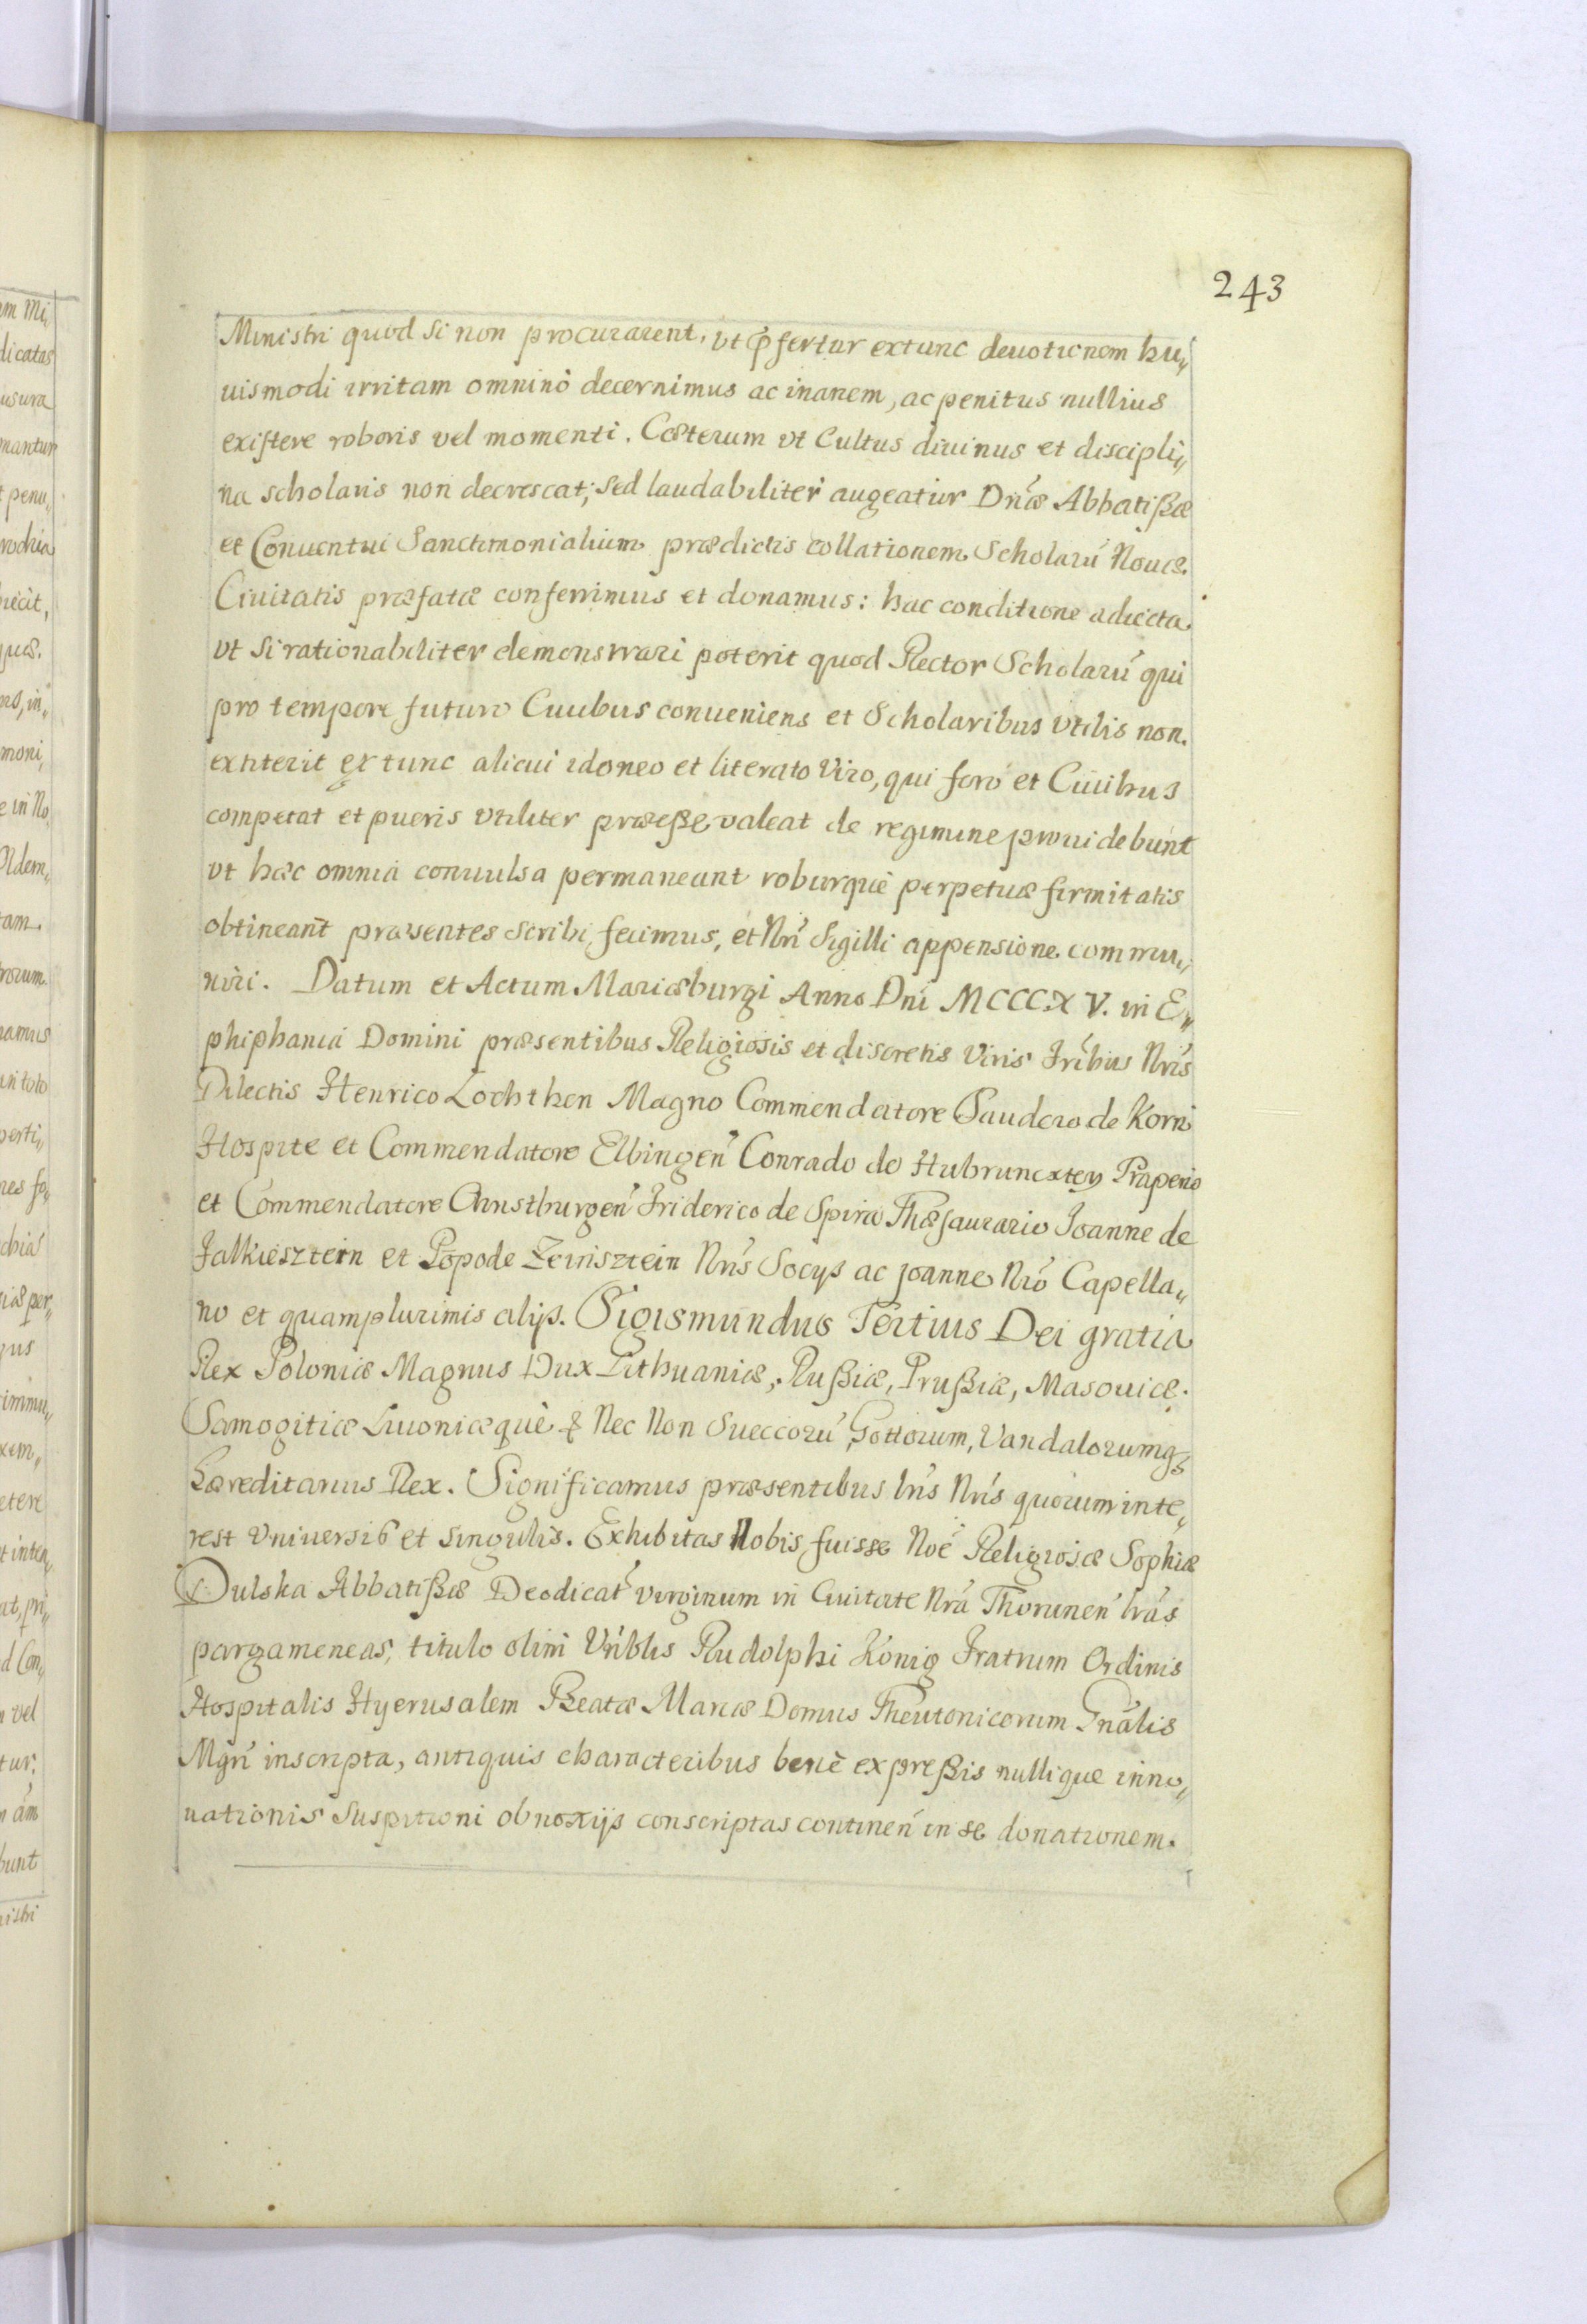 243
Ministri quod si non procurarent, vt p̃fertur extunc deuotionem hu„
uismodi irritam omninò decernimus ac inanem, ac penitus nullius
existere roboris vel momenti. Cæterum vt Cultus diuinus et discipli„
na scholaris non decrescat; sed laudabiliter augeatur Dńæ Abbatißæ
et Conuentui Sanctimonialium prædictis collationem Scholarú Nouæ.
Ciuitatis præfatæ conferrimus et donamus: hac conditione adiecta.
vt si rationabiliter demonstrari poterit quod Rector Scholarú qui
pro tempore futuro Ciuibus conueniens et Scholaribus vtilis non.
extiterit extunc alicui idoneo et literato Viro, qui foro et Ciuibus
competat et pueris vtiliter præeße valeat de regimine prouidebunt
vt hæc omnia conuulsa permaneant roburquè perpetuæ firmitatis
obtineant præsentes scribi fecimus, et Nrí Sigilli appensione commu„
niri. Datum et Actum Mariæburgi Anno Dní MCCCXV. in E„
phiphania Domini præsentibus Religiosis et discretis Viris Fríbus Nrís
Dilectis Henrico Lochthen Magno Commendatore Saudero de Korni
Hospite et Commendatore Elbingeń Conrado de Hubruncxtey Praperio
et Commendatore Christburgeń Friderico de Spira Thæsaurario Joanne de
Falkiesztein et Popode Zeinsztein Nrís Socys ac Joanne Nró Capella„
no et quamplurimis alijs. Sigismundus Tertius Dei gratia
Rex Poloniæ Magnus Dux Lithuaniæ, Rußiæ, Prußiæ, Masouiæ.
Samogitiæ Liuoniæquè & Nec Non Sueccorú Gottorum, Vandalorumq3
hæreditarius Rex. Significamus præsentibus lrís Nrís quorum inte„
rest vniuersis et singulis. Exhibitas Nobis fuisse Noé Religiosæ Sophiæ
Dulska Abbatißæ Deodicat́ virginum in Ciuitate Nrá Thoruneń lrás
pargameneas, titulo olim Vńblis Rudolphi König Fratrum Ordinis
Hospitalis Hyerusalem Beatæ Mariæ Domus Theutonicorum Gnális
Mgrí inscripta, antiquis characteribus benè expreßis nullique inno„
uationis suspitioni obnoxijs conscriptas contineń in se donationem.